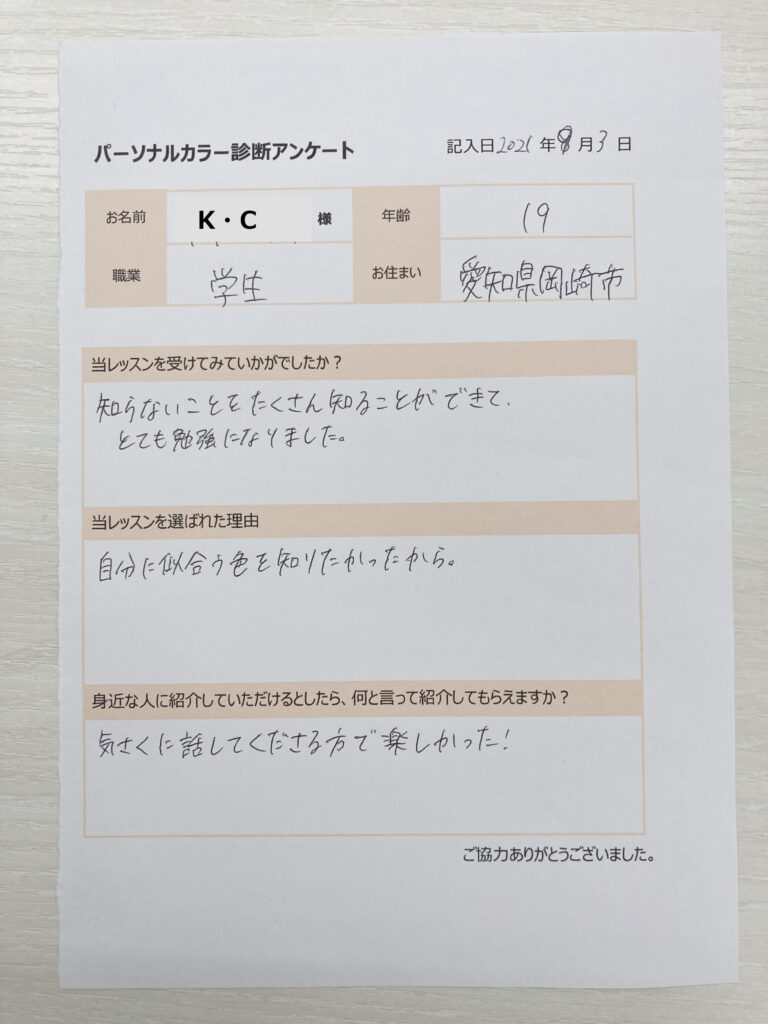 パーソナルカラー診断アンケート
記入日2021年8月3日
お名前 K・C 様 年齢 19
職業 学生 お住まい 愛知県岡崎市
当レッスンを受けてみていかがでしたか？
知らないことをたくさん知ることができて、
とても勉強になりました。
当レッスンを選ばれた理由
自分に似合う色を知りたかったから。
身近な人に紹介していただけるとしたら、何と言って紹介してもらえますか？
気さくに話してくださる方で楽しかった！
ご協力ありがとうございました。